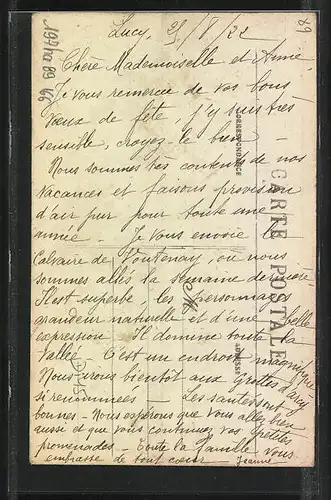 Lucy, 25/8/22
Chère Mademoiselle et Amie
Je vous remercie de vos bons
vœux de fête, j'y suis très
sensible, croyez-le bien —
Nous sommes très contents de nos
vacances et faisons provision
d'air pur pour toute une
année — Je vous envoie le
Calvaire de Fontenay, où nous
sommes allés la semaine dernière —
Il est superbe les personnages
grandeur naturelle et d'une belle
expression. Il domine toute la
vallée. C'est un endroit magnifique
Nous irons bientôt aux Grottes d'Arcy
si renommées — Les santés sont
bonnes — Nous espérons que vous allez bien
aussi et que vous continuez vos petites
promenades — Toute la famille vous
embrasse de tout cœur Jeanne
CARTE POSTALE
CORRESPONDANCE
ADRESSE
89